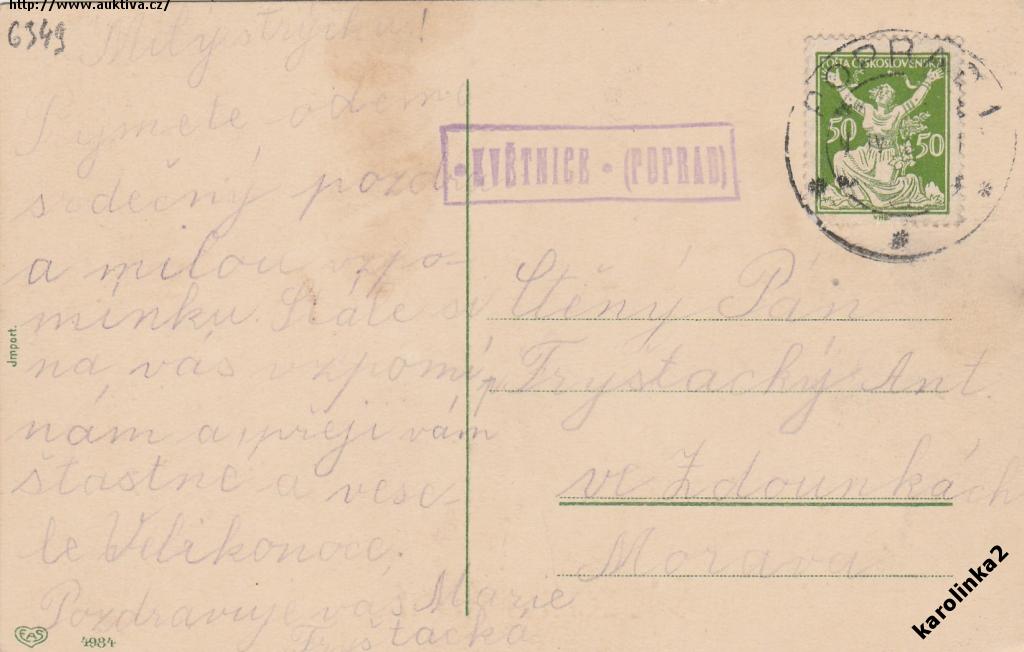 http://www.auktiva.cz/
6349
Milý strýčku!
Přijměte odemě
srdečný pozdr
a milou vzpo-
mínku. Stále si
na vás vzpomí
nám a přeji vám
štastné a vese-
lé Velikonoce.
Pozdravuje vás Marie
Fryštacká
POŠTA ČESKOSLOVENSKÁ
50 50
POPRAD 1
• KVĚTNICE • (POPRAD)
Ctěný Pán
Fryštacký Ant.
ve Zdounkách
Morava
Jmport.
EAS
4984
karolinka2